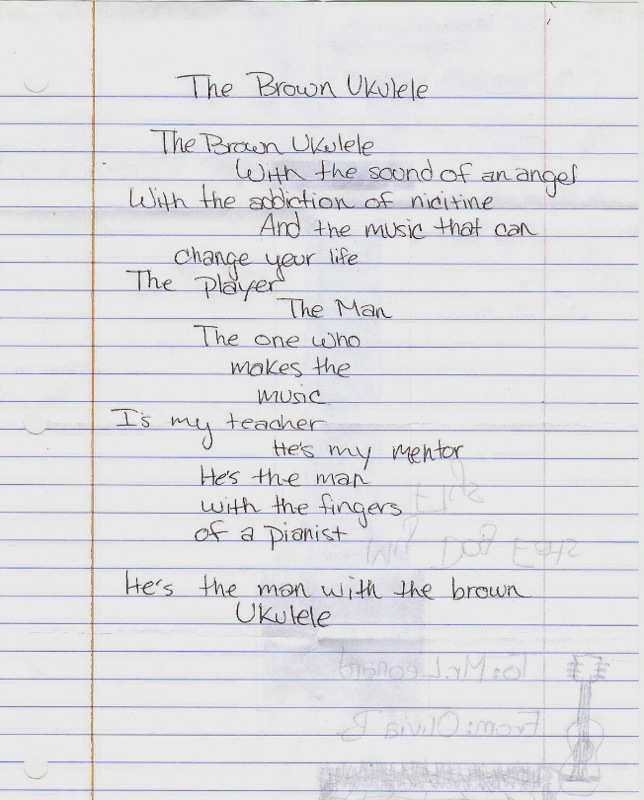 The Brown Ukulele
The Brown Ukulele
With the sound of an angel
With the addiction of nicitine
And the music that can
change your life
The Player
The Man
The one who
makes the
music
Is my teacher
He's my mentor
He's the man
with the fingers
of a pianist
He's the man with the brown
Ukulele
To: Mr. Leonard
From: Olivia B.